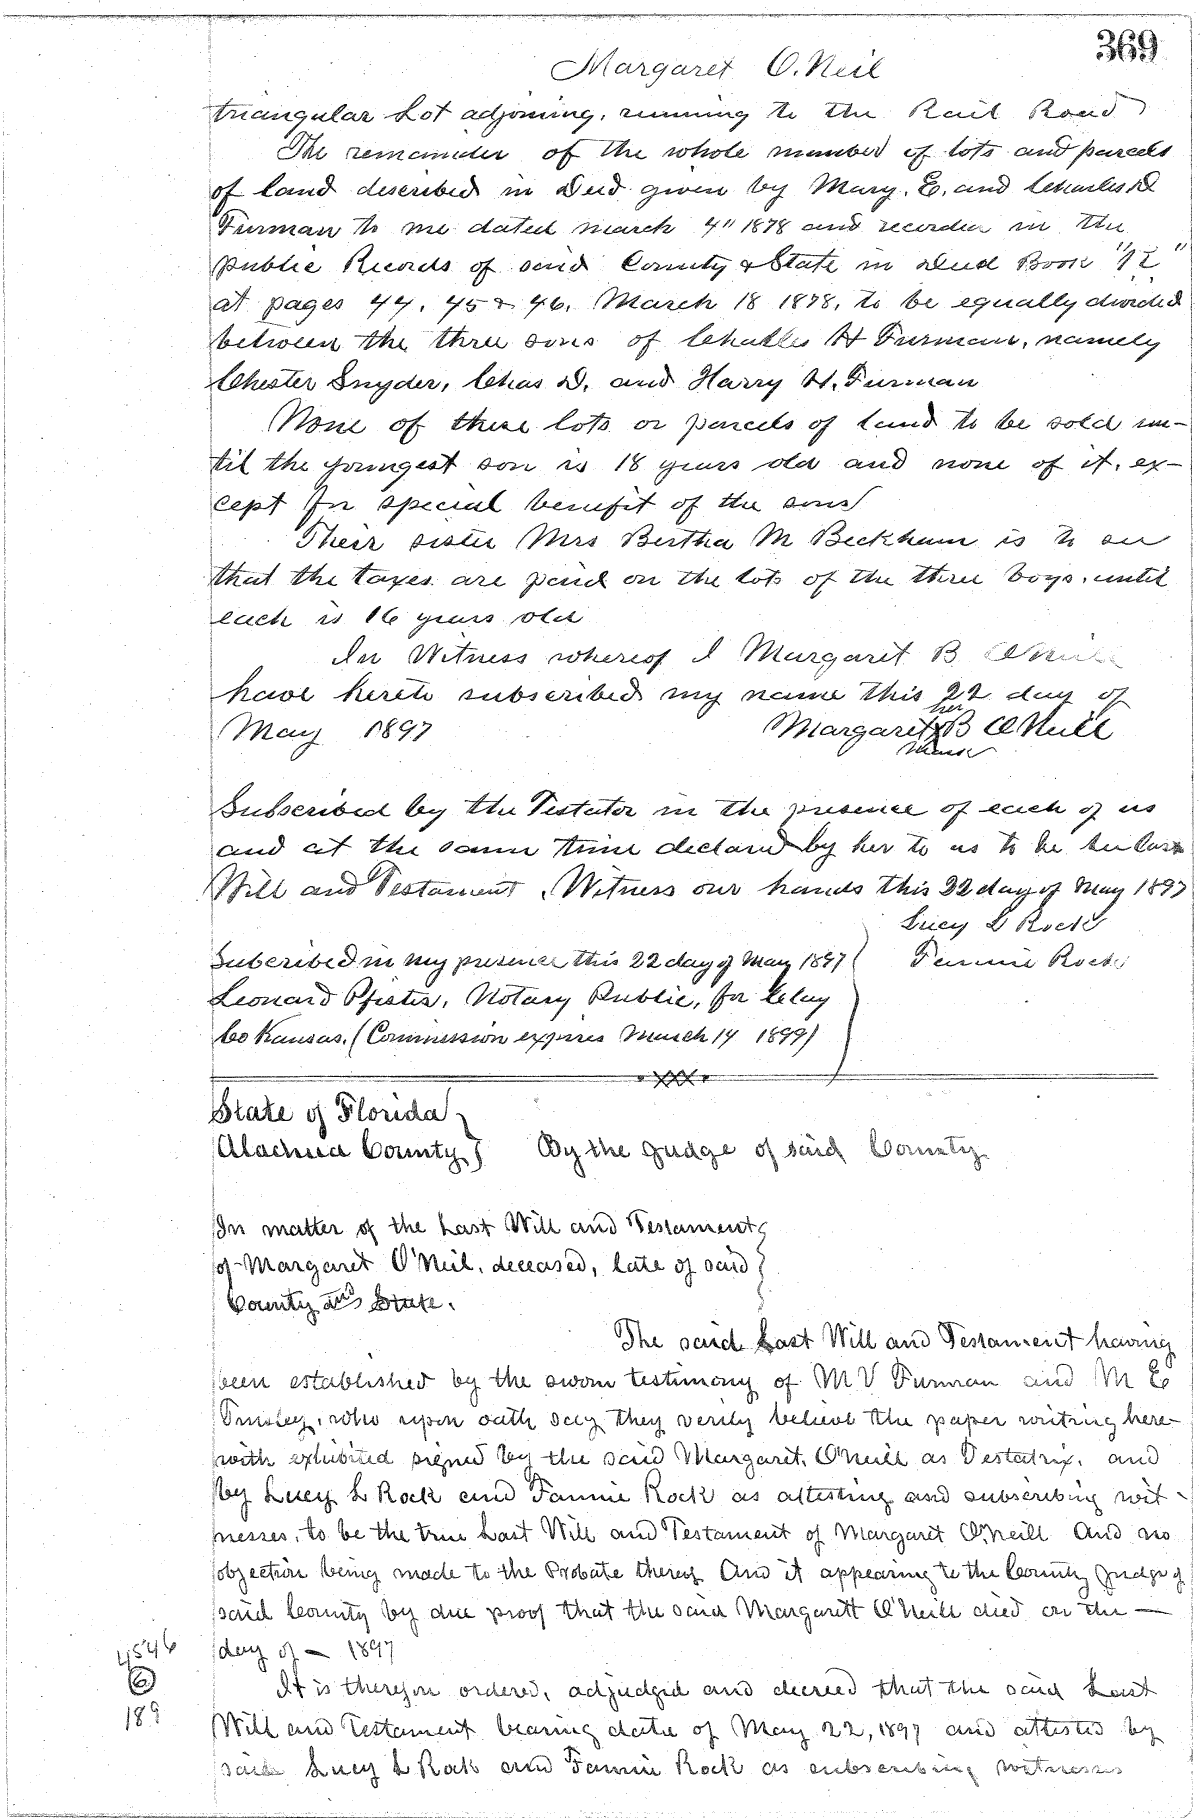 369
Margaret O.Neil
triangular Lot adjoining, running to the Rail Road
The remainder of the whole number of lots and parcels
of land described in Deed given by Mary. E. and Charles D
Furman to me dated march 4" 1878 and recorded in the
public Records of said County & State in Deed Book "12"
at pages 44, 45 & 46. March 18 1878, to be equally divided
between the three sons of Charles H Furman, namely
Chester Snyder, Chas D. and Harry H. Furman
None of these lots or parcels of land to be sold un-
til the youngest son is 18 years old and none of it, ex-
cept for special benefit of the sons
Their sister Mrs Bertha M Beckham is to see
that the taxes are paid on the lots of the three boys. until
each is 16 years old
In Witness whereof I Margaret B O'Neill
have hereto subscribed my name this 22 day of
May 1897 Margaret her X mark B O'Neill
Subscribed by the Testator in the presence of each of us
and at the same time declared by her to us to be her last
Will and Testament. Witness our hands this 22 day of May 1897
Lucy L Rock
Subcribed in my presence this 22 day of May 1897 Fannie Rock
Leonard Pfister, Notary Public, for Clay
Co Kansas. (Commission expires March 14 1899)
State of Florida
Alachua County By the Judge of said County
In matter of the Last Will and Testament
of Margaret O'Neil, deceased, late of said
County and State.
The said Last Will and Testament having
been established by the sworn testimony of M V Furman and M E
Tinsley, who upon oath say they verily believe the paper writing here-
with exhibited signed by the said Margaret. O'Neill as Testatrix, and
by Lucy L Rock and Fannie Rock as attesting and subscribing wit-
nesses, to be the true Last Will and Testament of Margaret O'Neill And no
objection being made to the Probate thereof And it appearing to the County Judge of
said County by due proof that the said Margarett O'Neill died on the —
day of — 1897
It is thereon ordered, adjudged and decreed that the said Last
Will and Testament bearing date of May 22, 1897 and attested by
said Lucy L Rock and Fannie Rock as subscribing witnesses
4546
6
189